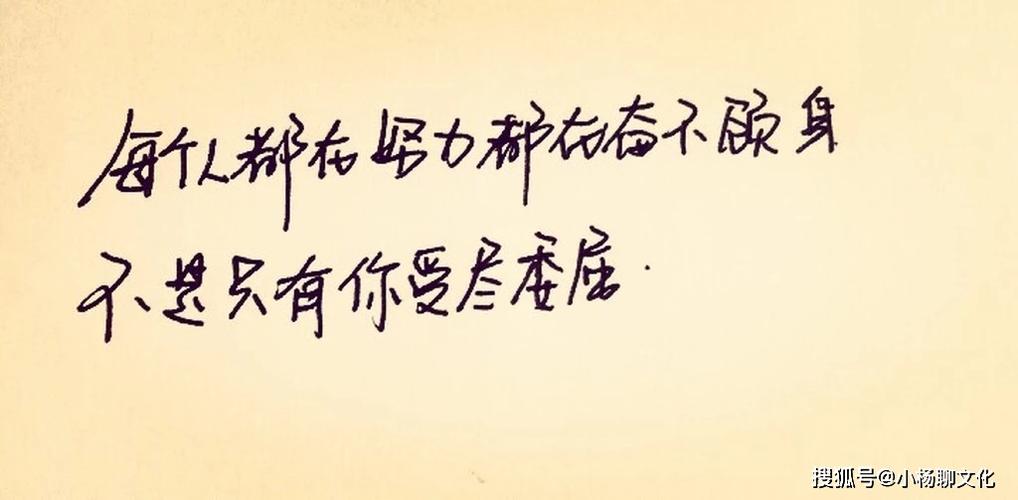 每个人都在努力都在奋不顾身
不是只有你受尽委屈.
搜狐号@小杨聊文化